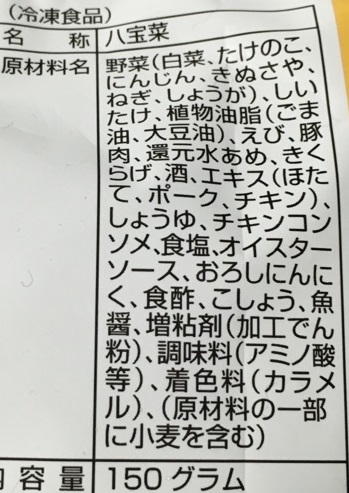 （冷凍食品）
名称 八宝菜
原材料名 野菜（白菜、たけのこ、
にんじん、きぬさや、
ねぎ、しょうが）、しい
たけ、植物油脂（ごま
油、大豆油）、えび、豚
肉、還元水あめ、きく
らげ、酒、エキス（ほた
て、ポーク、チキン）、
しょうゆ、チキンコン
ソメ、食塩、オイスター
ソース、おろしにんに
く、食酢、こしょう、魚
醤、増粘剤（加工でん
粉）、調味料（アミノ酸
等）、着色料（カラメ
ル）、（原材料の一部
に小麦を含む）
内容量 150グラム